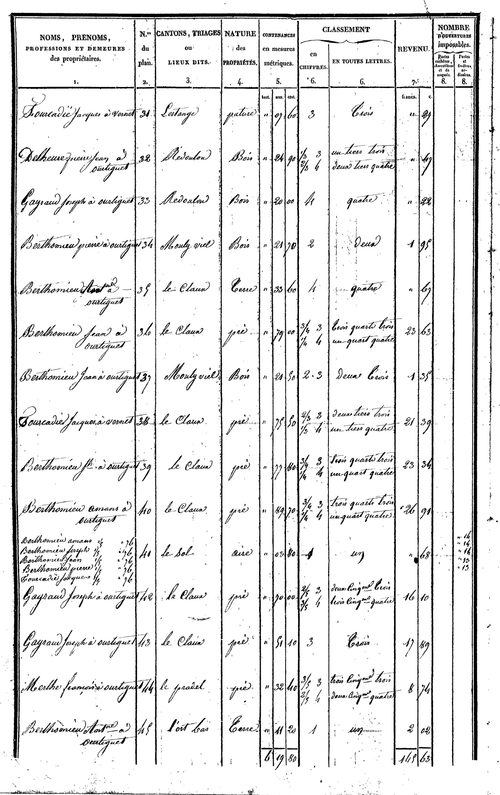 NOMS, PRÉNOMS, PROFESSIONS ET DEMEURES des propriétaires. N.os du plan. CANTONS, TRIAGES ou LIEUX DITS. NATURE des PROPRIÉTÉS. CONTENANCES en mesures métriques. CLASSEMENT en CHIFFRES. EN TOUTES LETTRES. REVENU. NOMBRE D'OUVERTURES imposables.
1. 2. 3. 4. 5. 6. 6. 7. 8. 8.
Fourcadié Jacques à vernet 31 Lestange pature " 07 60 3 Trois " 29
Delheure pierre Jean à ourtiguet 32 Redoulou Bois " 24 90 1/3 3 2/3 4 un tiers trois deux tiers quatre " 47
Gayraud Joseph à ourtiguet 33 Redoulou Bois " 20 00 4 quatre " 22
Berthomieu pierre à ourtiguet 34 Mouly viel Bois " 21 70 2 deux 1 95
Berthomieu à ourtiguet 35 le Claux Terre " 33 60 4 quatre " 67
Berthomieu Jean à ourtiguet 36 le Claux pré " 79 00 3/4 3 1/4 4 trois quarts trois un quart quatre 23 63
Berthomieu Jean à ourtiguet 37 Mouly viel Bois " 21 50 2-3 Deux Trois 1 35
Fourcadié Jacques à vernet 38 le Claux pré " 75 50 2/3 3 1/3 4 deux tiers trois un tiers quatre 21 39
Berthomieu à ourtiguet 39 le Claux pré " 77 3/4 3 1/4 4 trois quarts trois un quart quatre 23 34
Berthomieu amans à ourtiguet 40 le Claux pré " 89 70 3/4 3 1/4 4 trois quarts trois un quart quatre 26 91
Berthomieu amans
Berthomieu Joseph
Berthomieu Jean
Berthomieu pierre
Fourcadié Jacques
41 le sol aire " 03 80 1 un " 68
Gayraud Joseph à ourtiguet 42 le Claux pré " 70 00 2/5 3 3/5 4 deux cinqmes trois trois cinqmes quatre 16 10
Gayraud Joseph à ourtiguet 43 le Claux pré " 51 10 3 Trois 17 89
Merthe francois à ourtiguet 44 le pradel pré " 32 40 3/5 3 2/5 4 trois cinqmes trois deux cinqmes quatre 8 74
Berthomieu à ourtiguet 45 L'ort bas Terre " 11 20 1 un 2 02
6 19 80 145 63